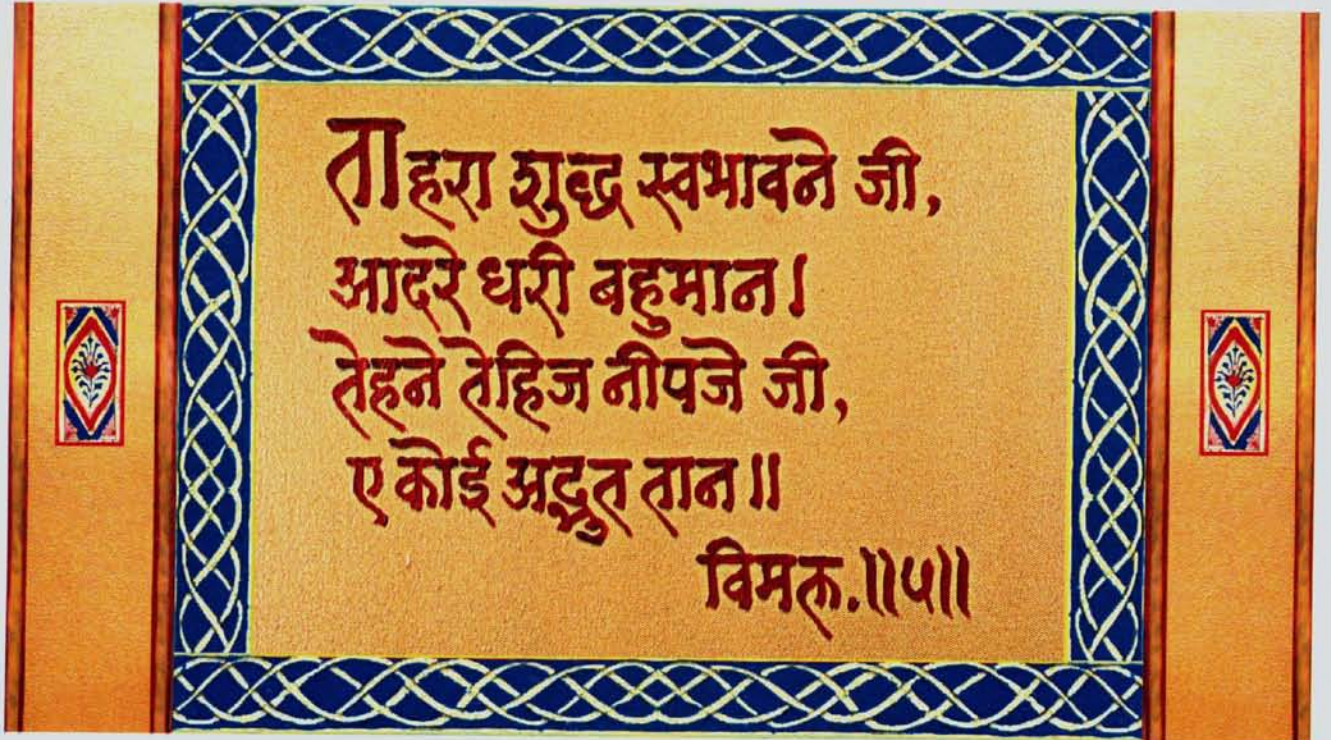 ताहरा शुद्ध स्वभावने जी,
आदरे धरी बहुमान।
तेहने तेहिज नीपजे जी,
ए कोई अद्भुत तान॥
विमल.॥५॥